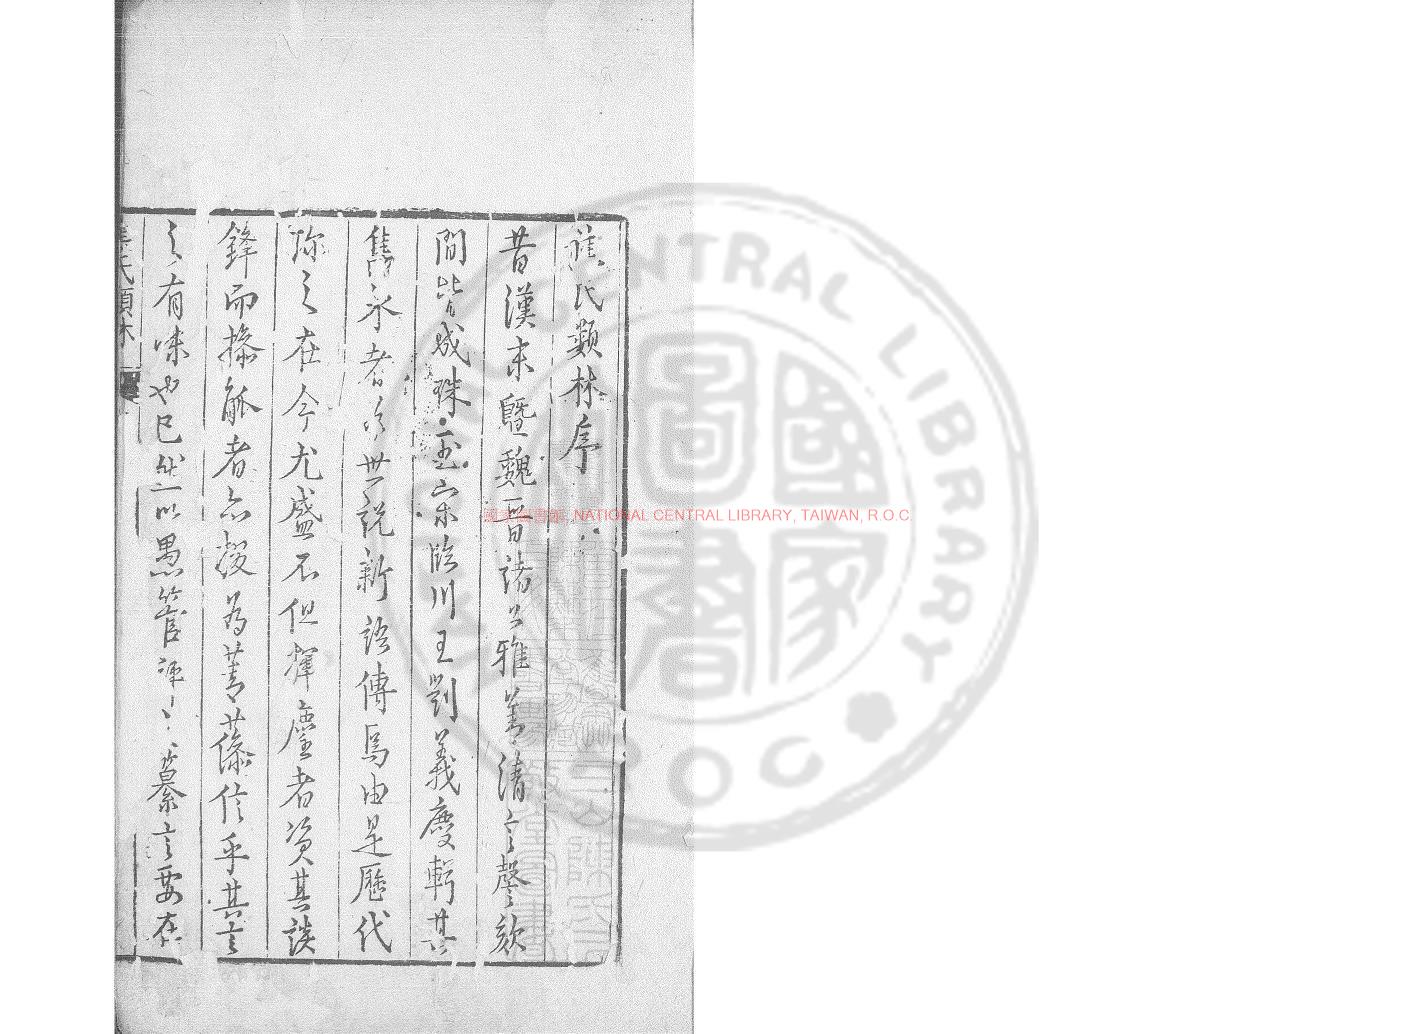 焦氏類林序
昔漢末暨魏晉諸公雅善清言謦欬
間皆成珠玉宋臨川王劉義慶輯其
雋永者為世說新語傳焉由是歷代
珍之在今尤盛不但揮麈者資其談
鋒而操觚者亦掇為菁藻信乎其言
之有味也已然以愚管評之纂言要在
氏類林
國家圖書館, NATIONAL CENTRAL LIBRARY, TAIWAN, R.O.C.
CENTRAL LIBRARY
ROC
國家圖書